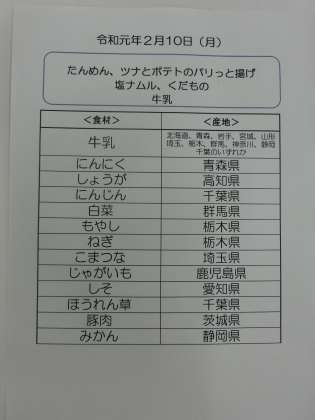 令和元年2月10日(月)
たんめん、ツナとポテトのパリっと揚げ
塩ナムル、くだもの
牛乳
<食材> <産地>
牛乳 北海道、青森、岩手、宮城、山形
埼玉、栃木、群馬、神奈川、静岡
千葉のいずれか
にんにく 青森県
しょうが 高知県
にんじん 千葉県
白菜 群馬県
もやし 栃木県
ねぎ 栃木県
こまつな 埼玉県
じゃがいも 鹿児島県
しそ 愛知県
ほうれん草 千葉県
豚肉 茨城県
みかん 静岡県